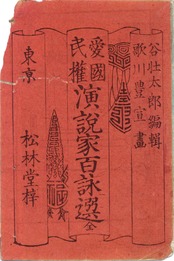 谷壯太郎編輯
歌川豊宣畫
愛國
民權
演說家百詠選
全
東京
松林堂梓